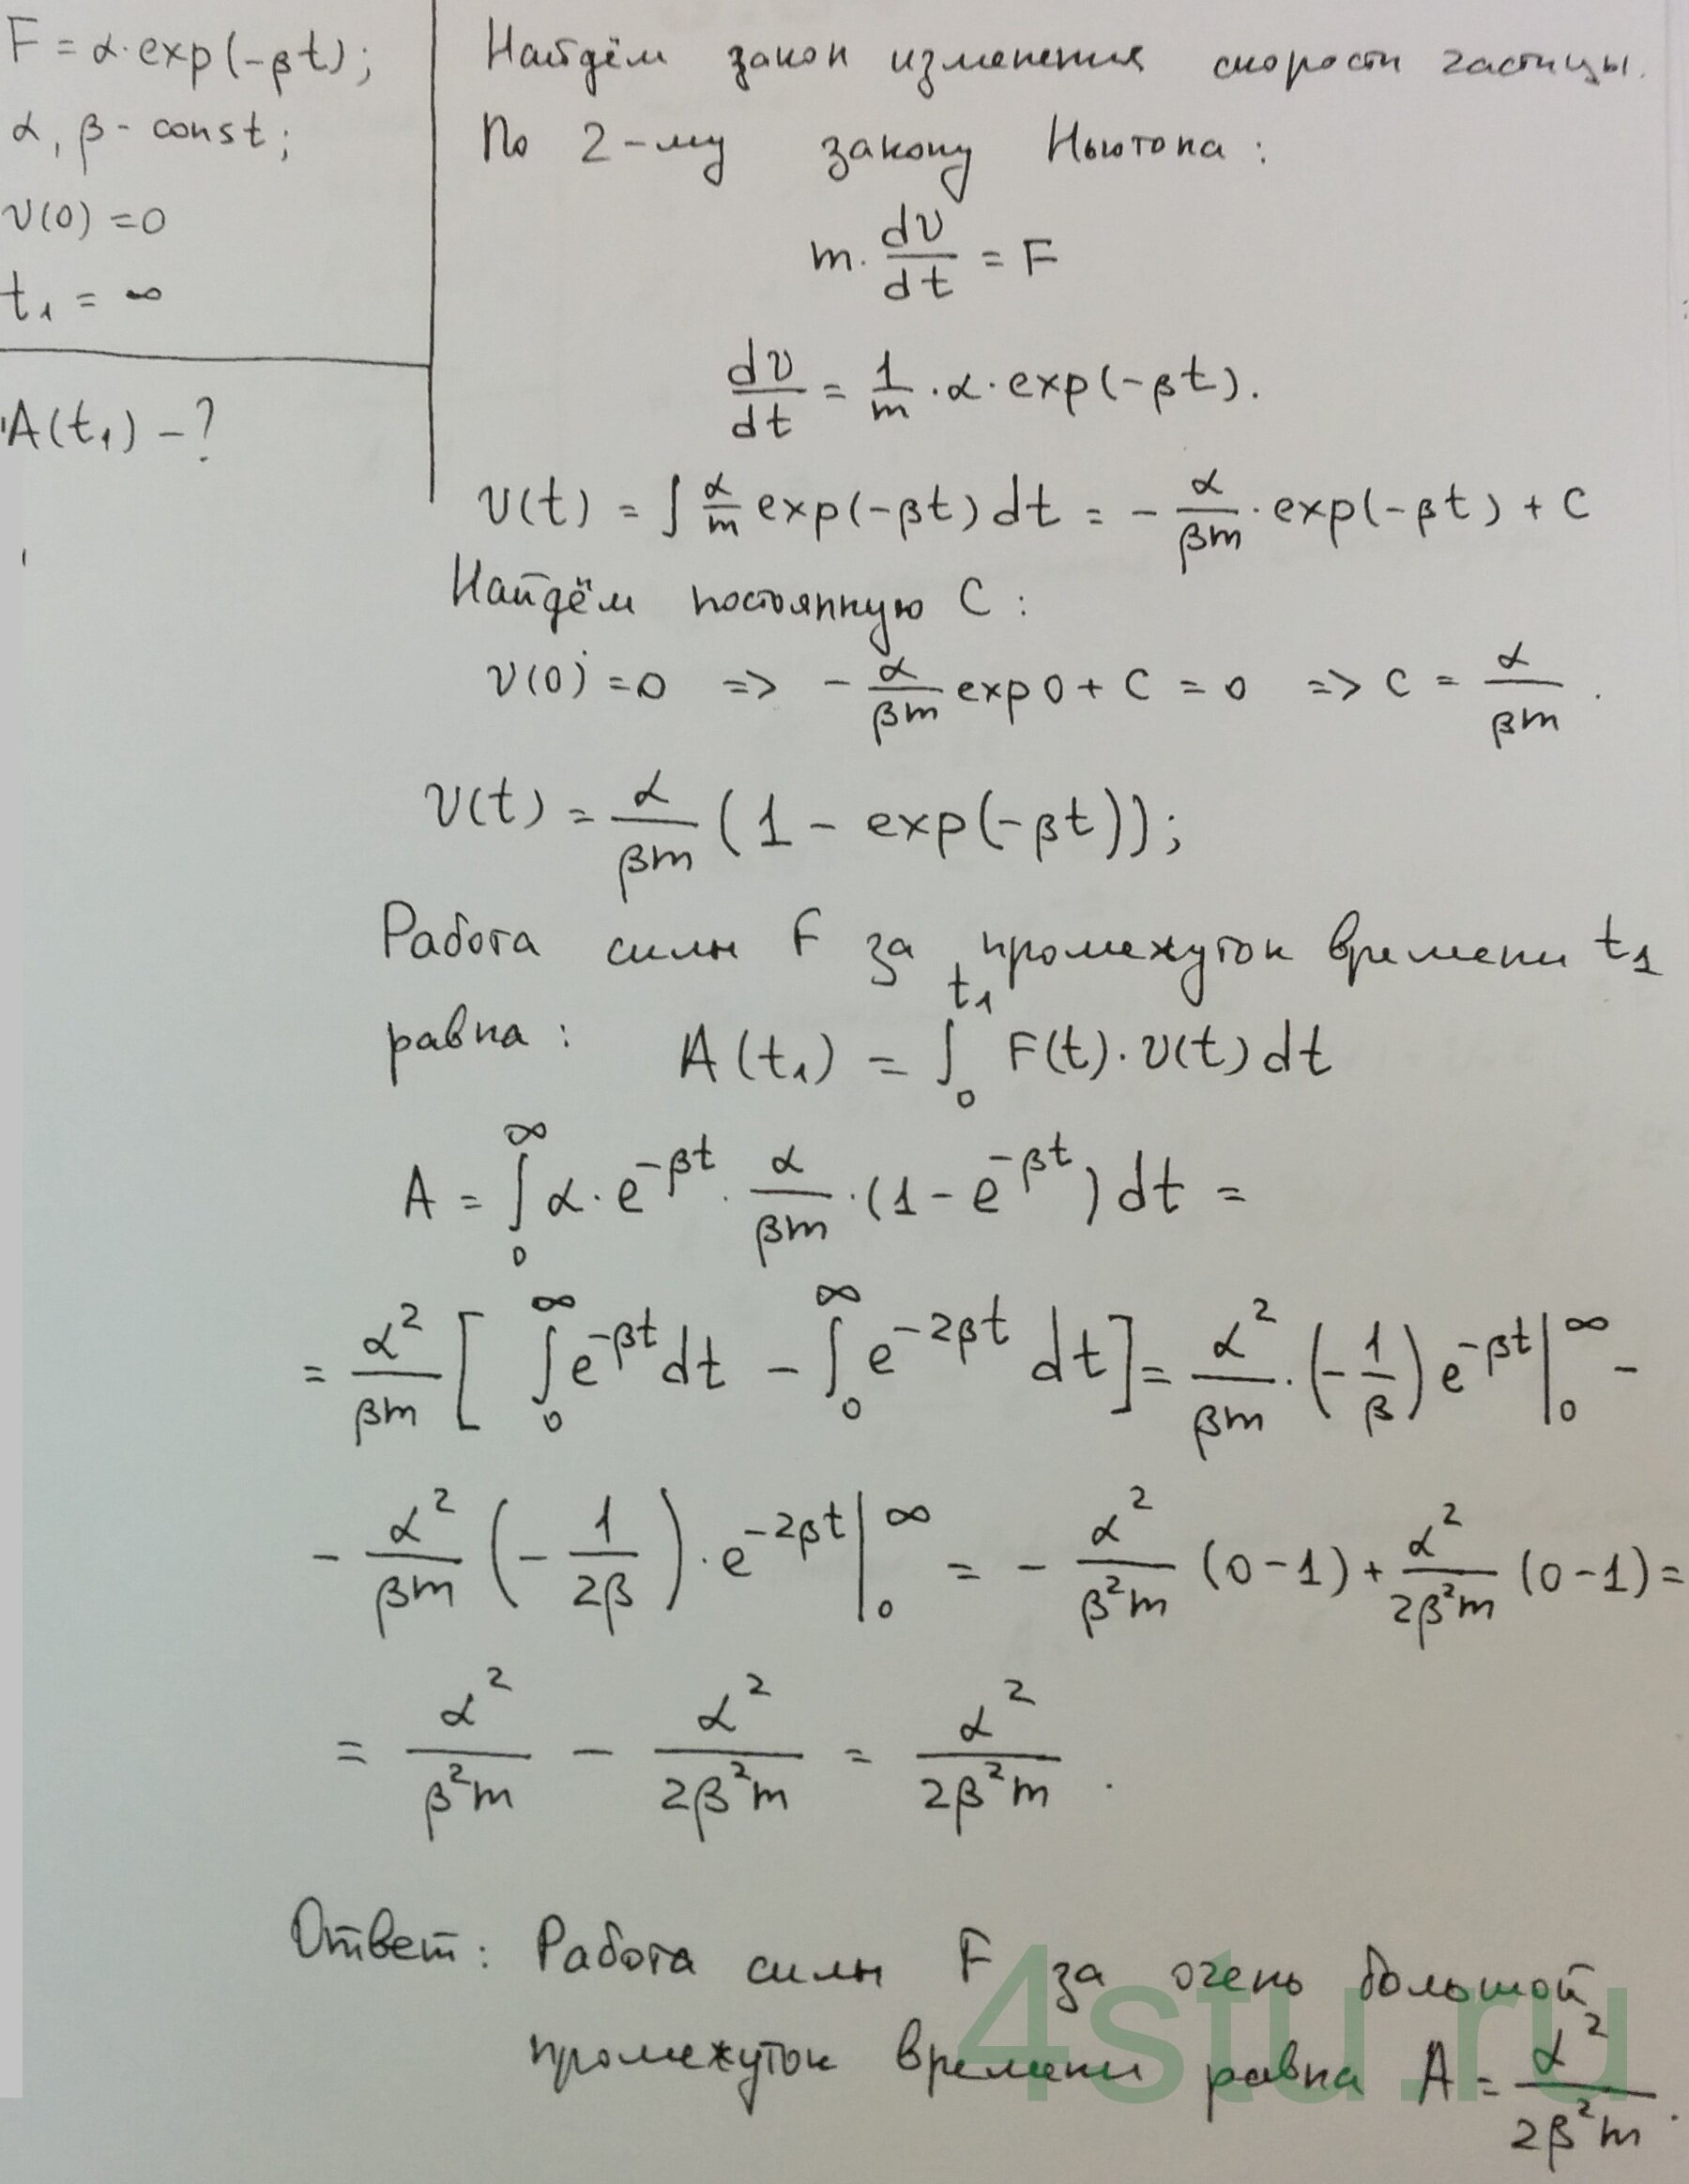 F = α·exp(-βt);
α, β - const;
v(0) = 0
t₁ = ∞
A(t₁) - ?
Найдём закон изменения скорости частицы.
По 2-му закону Ньютона:
m·dv/dt = F
dv/dt = 1/m·α·exp(-βt).
v(t) = ∫ α/m exp(-βt) dt = - α/βm·exp(-βt) + C
Найдём постоянную C:
v(0) = 0 => - α/βm exp 0 + C = 0 => C = α/βm.
v(t) = α/βm (1 - exp(-βt));
Работа силы F за промежуток времени t₁
равна: A(t₁) = ∫₀^t₁ F(t)·v(t) dt
A = ∫₀^∞ α·e^(-βt)·α/βm·(1 - e^(-βt)) dt =
= α²/βm [ ∫₀^∞ e^(-βt) dt - ∫₀^∞ e^(-2βt) dt ] = α²/βm·(-1/β) e^(-βt) |₀^∞ -
- α²/βm (-1/2β)·e^(-2βt) |₀^∞ = - α²/β²m (0-1) + α²/2β²m (0-1) =
= α²/β²m - α²/2β²m = α²/2β²m.
Ответ: Работа силы F за очень большой
промежуток времени равна A = α²/2β²m.
4stu.ru